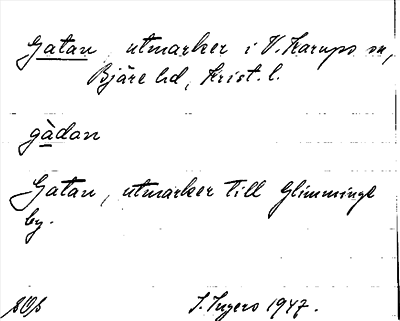 Gatan utmarker i V. Karups sn,
Bjäre hd, Krist. l.
gàdan
Gatan, utmarker till Glimminge
by.
S. Ingers 1947.